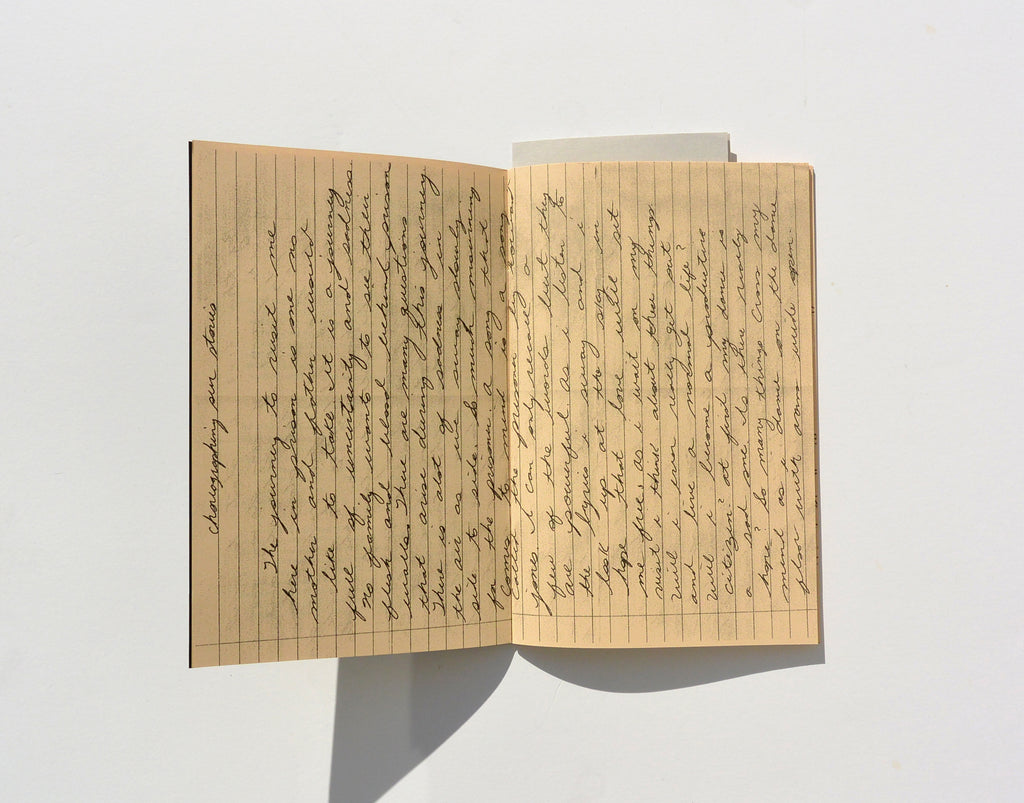 Choreographing our stories
The journey to visit me
here in prison is one no
mother and father would
like to take. It is a journey
full of uncertainty and sadness
No family wants to see their
flesh and blood behind prison
walls. There are many questions
that arise during this journey
There is alot of sadness in
the air as we sway slowly
side to side. So much mourning
for the prisoner, a song that
comes to mind is a song
called the prison by
jones. I can only recall a
few of the words but they
are powerful as i listen to
the lyrics i sway and i
look up at the sky in
hope that love will set
me free, as i wait on my
visit i think about these things.
Will i ever really get out
and live a normal life?
Will i become a productive
citizen? at first my dance is
a sad one Is there really
hope? So many things cross my
mind as i dance on the dance
floor with arms wide open.